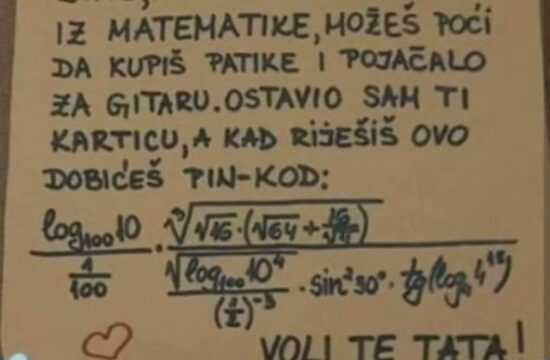 IZ MATEMATIKE, MOŽEŠ POĆI
DA KUPIŠ PATIKE I POJAČALO
ZA GITARU. OSTAVIO SAM TI
KARTICU, A KAD RIJEŠIŠ OVO
DOBIĆEŠ PIN-KOD:
log₁₀₀10 / (1/100) · ∛(√16·(√64+
√(log₁₀₀10⁴) / (1/2)⁻³ · sin²90° · tg(log
VOLI TE TATA!